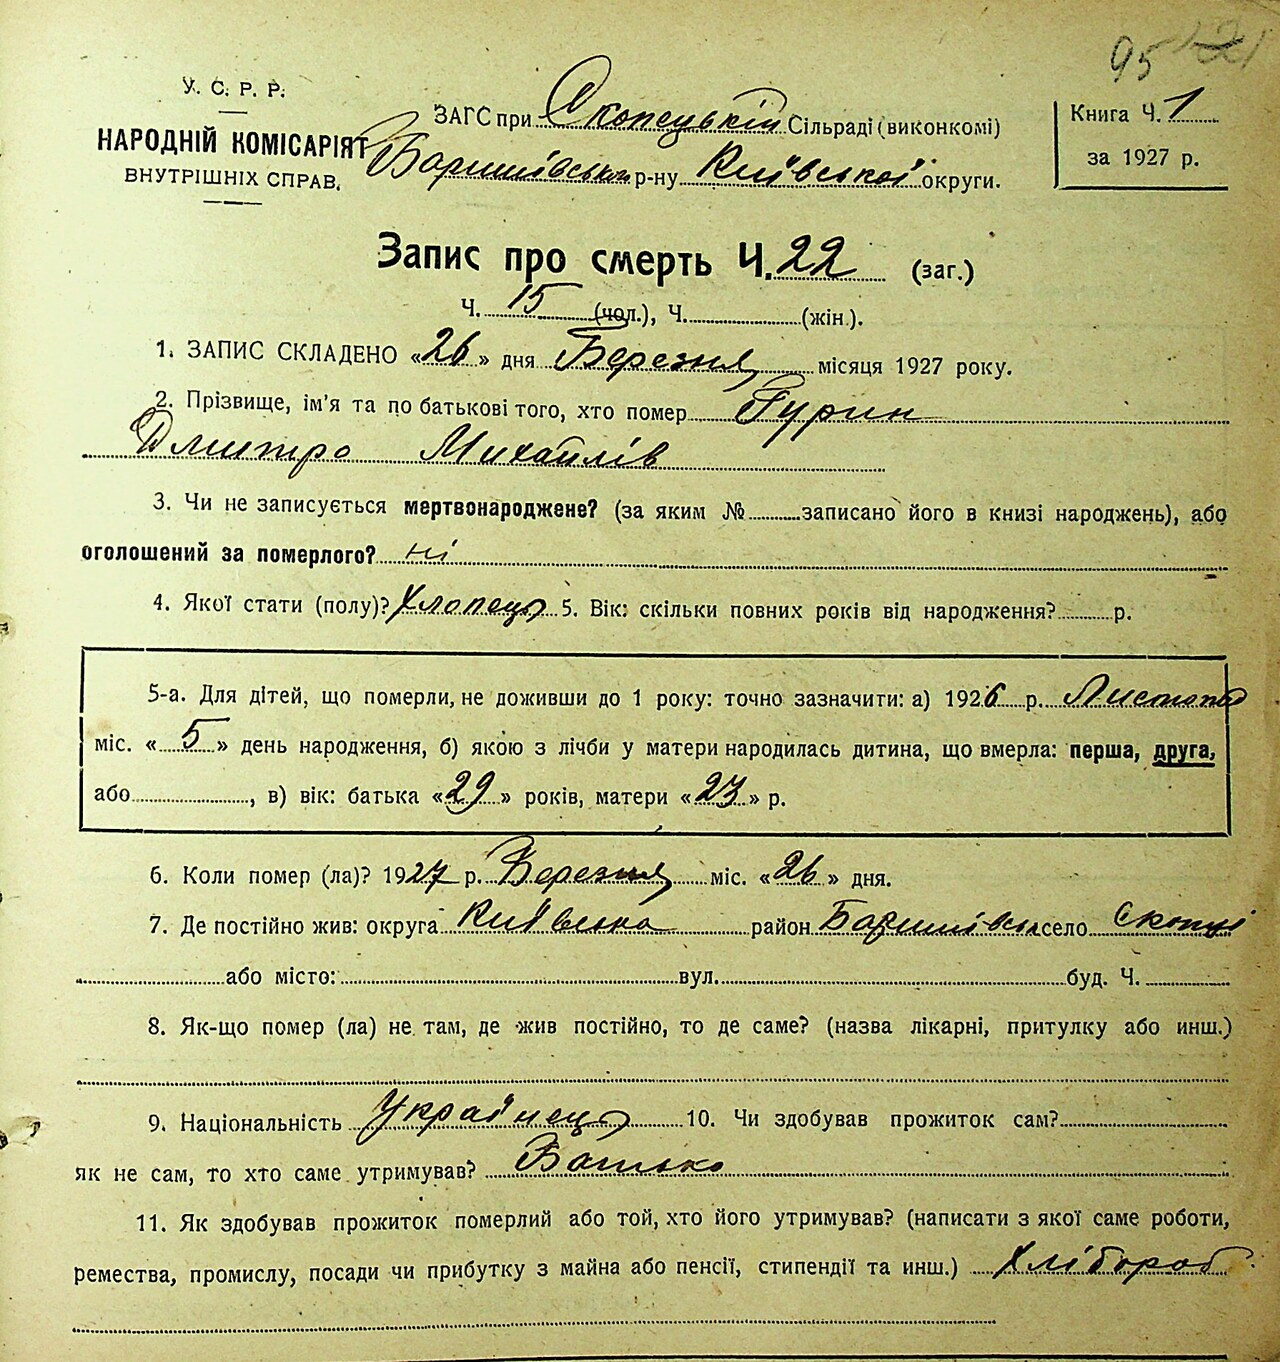 95
У. С. Р. Р.
НАРОДНІЙ КОМІСАРІЯТ
ВНУТРІШНІХ СПРАВ.
ЗАГС при Скопецькій Сільраді (виконкомі)
Баришівськом р-ну Київської округи.
Книга Ч. 1
за 1927 р.
Запис про смерть Ч. 22 (заг.)
Ч. 15 (чол.), Ч. (жін.).
1. ЗАПИС СКЛАДЕНО «26» дня Березня місяця 1927 року.
2. Прізвище, ім'я та по батькові того, хто помер Гурин
Дмитро Михайлів
3. Чи не записується мертвонароджене? (за яким № записано його в книзі народжень), або
оголошений за померлого? ні
4. Якої стати (полу)? Хлопець 5. Вік: скільки повних років від народження? р.
5-а. Для дітей, що померли, не доживши до 1 року: точно зазначити: а) 1926 р. Листопад
міс. «5» день народження, б) якою з лічби у матери народилась дитина, що вмерла: перша, друга,
або , в) вік: батька «29» років, матери «23» р.
6. Коли помер (ла)? 1927 р. Березня міс. «26» дня.
7. Де постійно жив: округа Київська район Баришівськ село Скопці
або місто: вул. буд. Ч.
8. Як-що помер (ла) не там, де жив постійно, то де саме? (назва лікарні, притулку або инш.)
9. Національність Українець 10. Чи здобував прожиток сам?
як не сам, то хто саме утримував? Батько
11. Як здобував прожиток померлий або той, хто його утримував? (написати з якої саме роботи,
ремества, промислу, посади чи прибутку з майна або пенсії, стипендії та инш.) Хлібороб